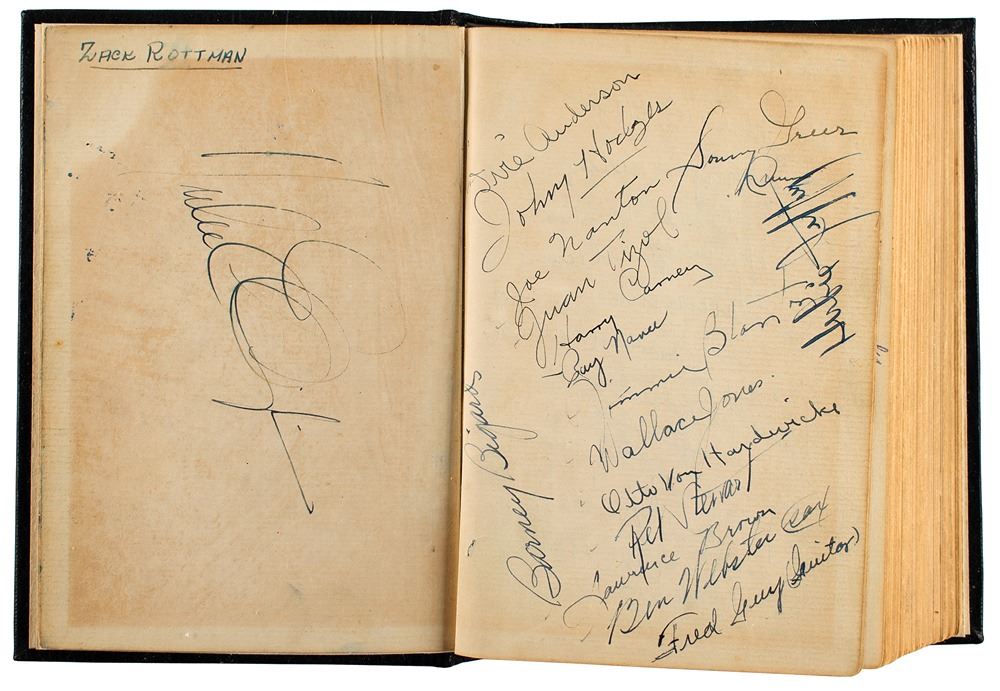 ZACK ROTTMAN
Ivie Anderson
Johny Hodges
Sonny Greer
Joe Nanton
Juan Tizol
Harry Carney
Ray Nance
Jimmie Blanton
Wallace Jones
Barney Bigard
Otto Von Hardwicke
Rex Stewart
Lawrence Brown
Ben Webster sax
Fred Guy (Guitar)